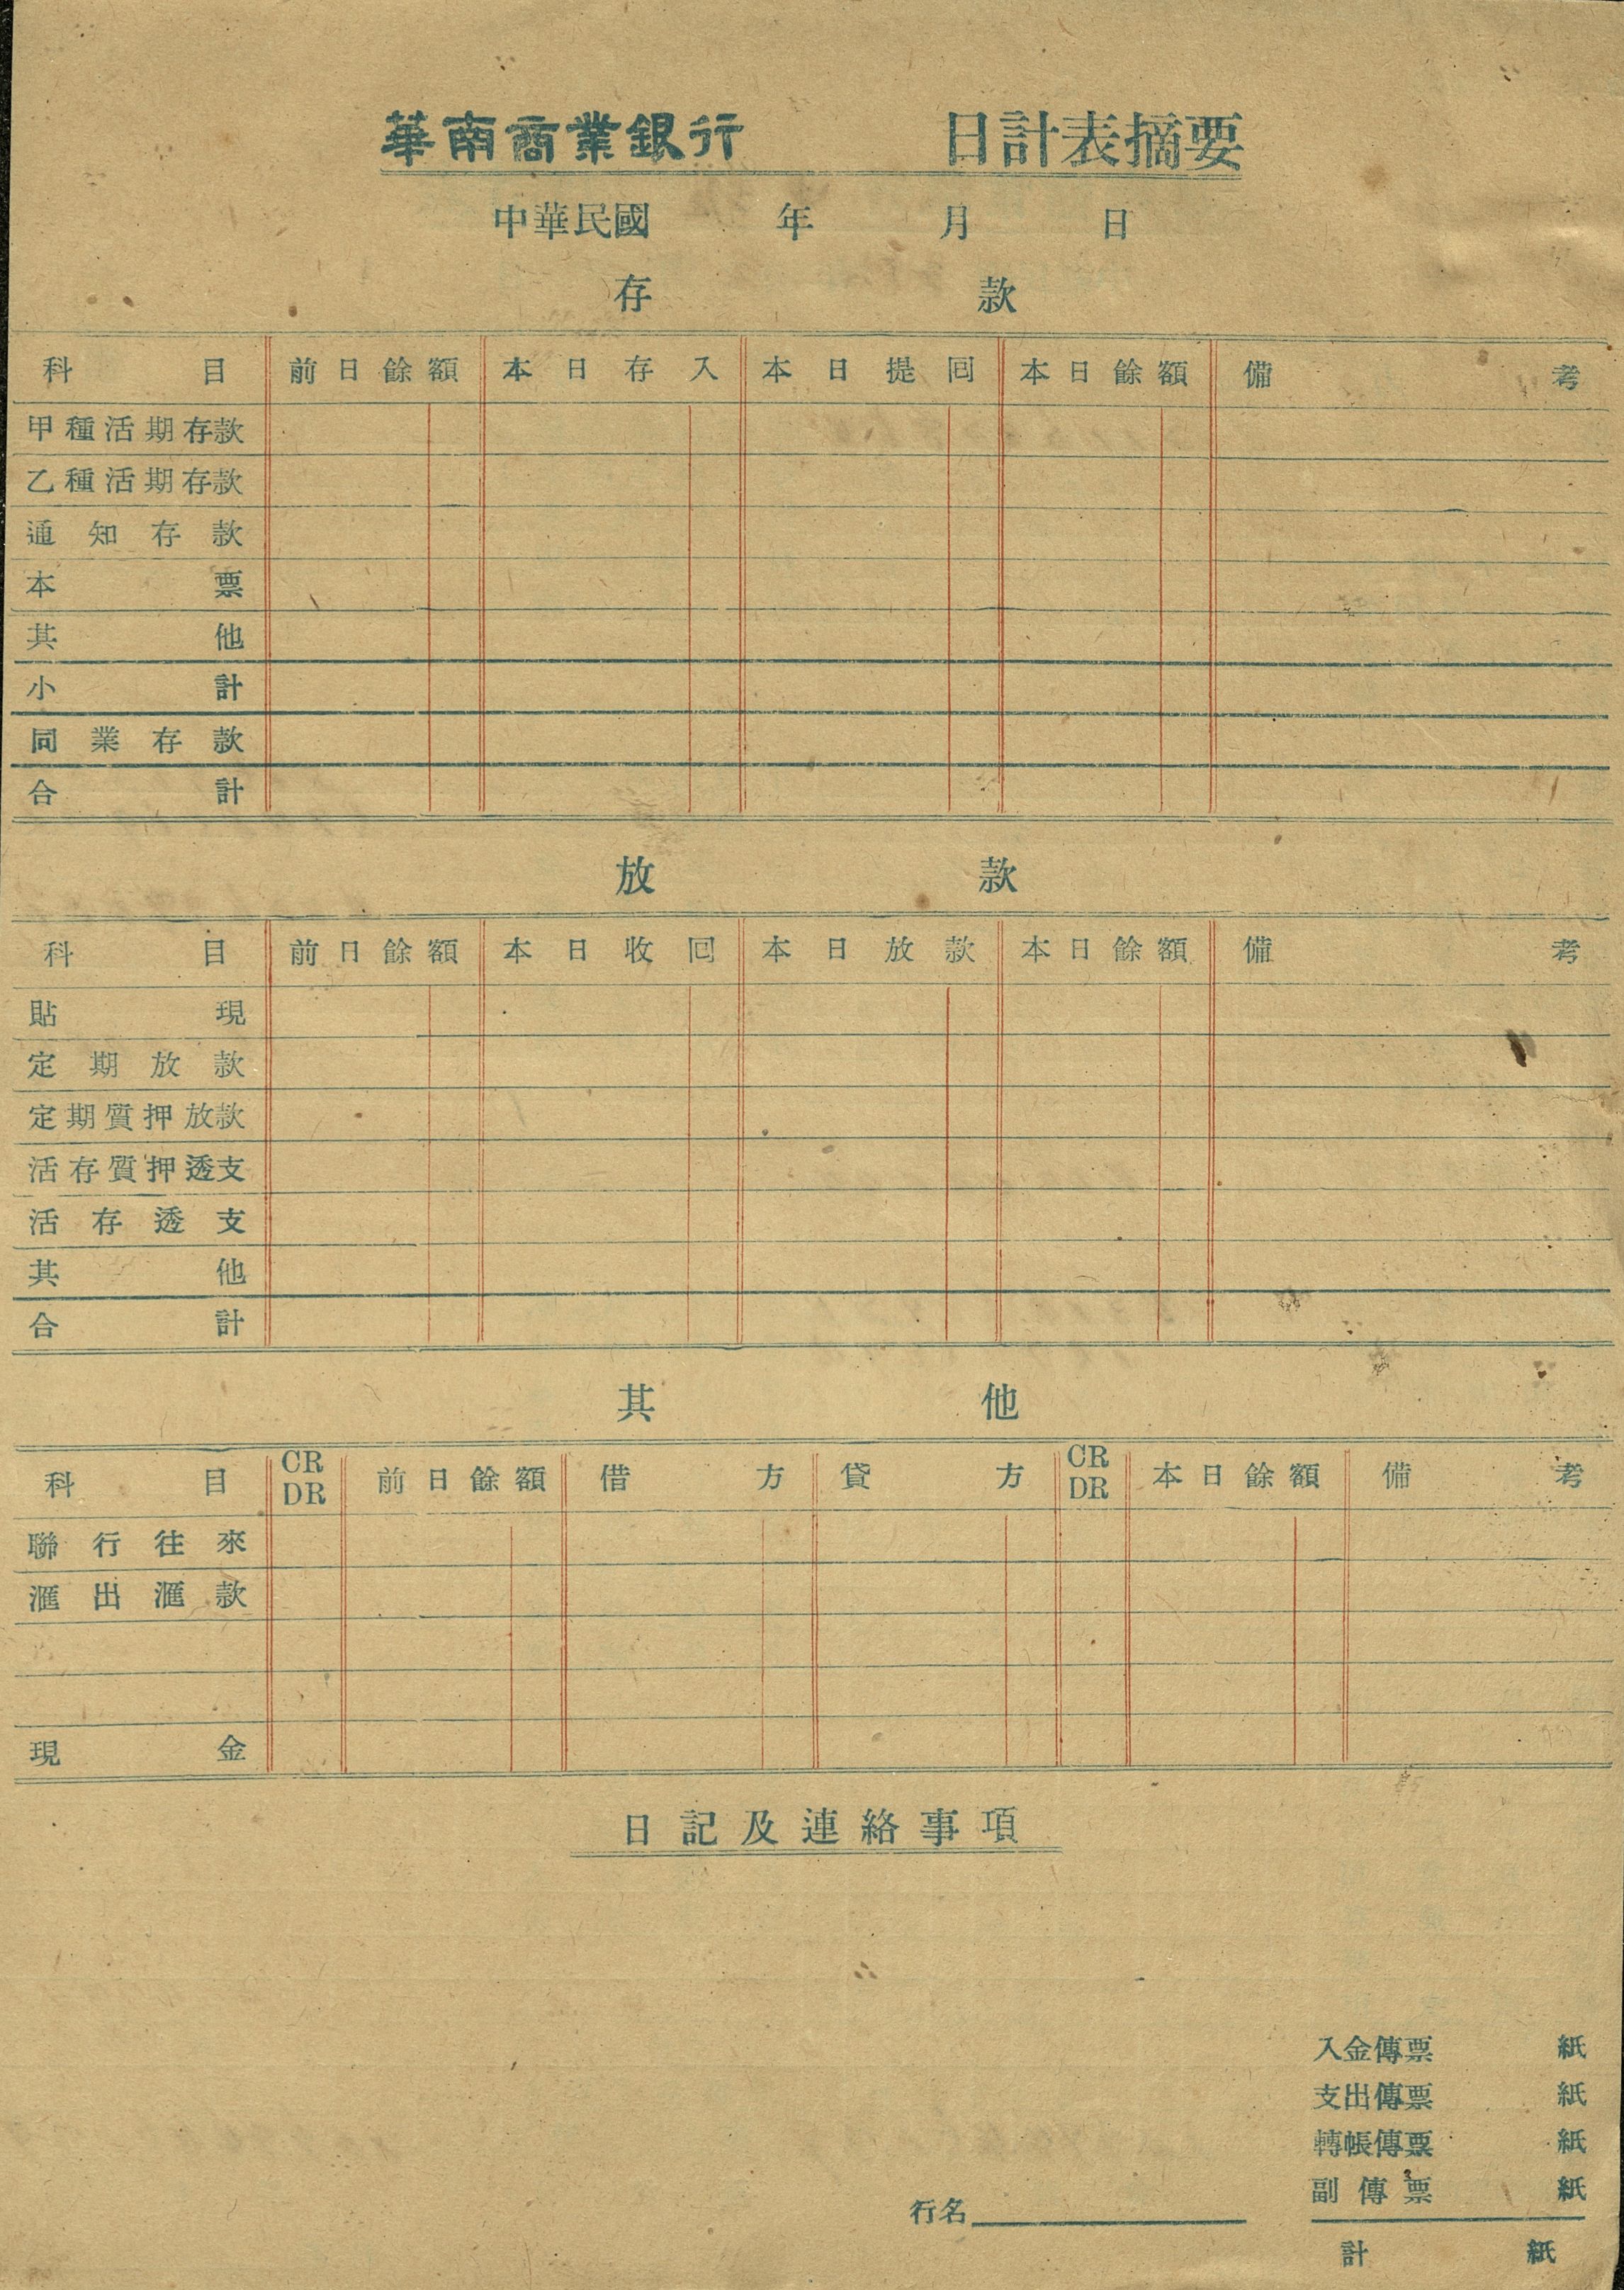 華南商業銀行 日計表摘要
中華民國 年 月 日
存款
科目 前日餘額 本日存入 本日提回 本日餘額 備考
甲種活期存款
乙種活期存款
通知存款
本票
其他
小計
同業存款
合計
放款
科目 前日餘額 本日收回 本日放款 本日餘額 備考
貼現
定期放款
定期質押放款
活存質押透支
活存透支
其他
合計
其他
科目 CR DR 前日餘額 借方 貸方 CR DR 本日餘額 備考
聯行往來
滙出滙款
現金
日記及連絡事項
入金傳票 紙
支出傳票 紙
轉帳傳票 紙
副傳票 紙
行名
計 紙